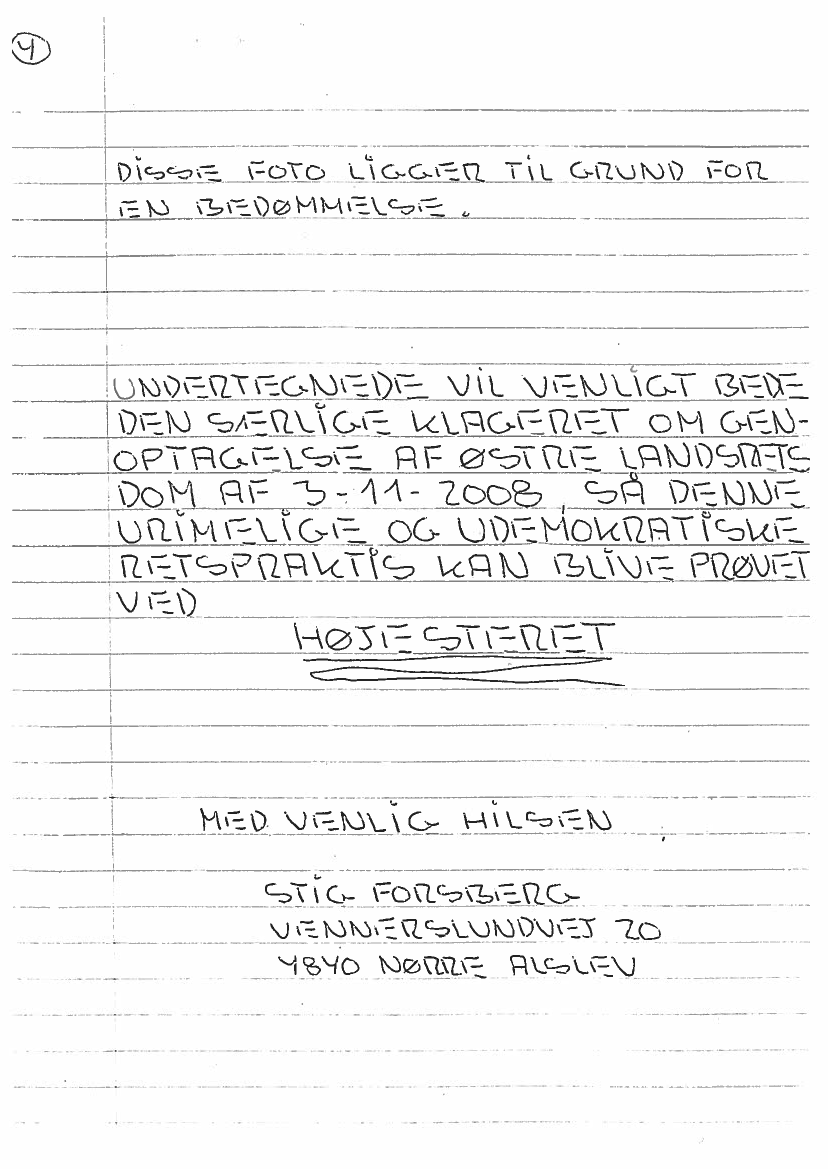 4
DISSE FOTO LIGGER TIL GRUND FOR
EN BEDØMMELSE.
UNDERTEGNEDE VIL VENLIGT BEDE
DEN SÆRLIGE KLAGERET OM GEN-
OPTAGELSE AF ØSTRE LANDSRETS
DOM AF 3-11-2008, SÅ DENNE
URIMELIGE OG UDEMOKRATISKE
RETSPRAKTIS KAN BLIVE PRØVET
VED
HØJESTERET
MED VENLIG HILSEN
STIG FORSBERG
VENNERSLUNDVEJ 20
4840 NØRRE ALSLEV